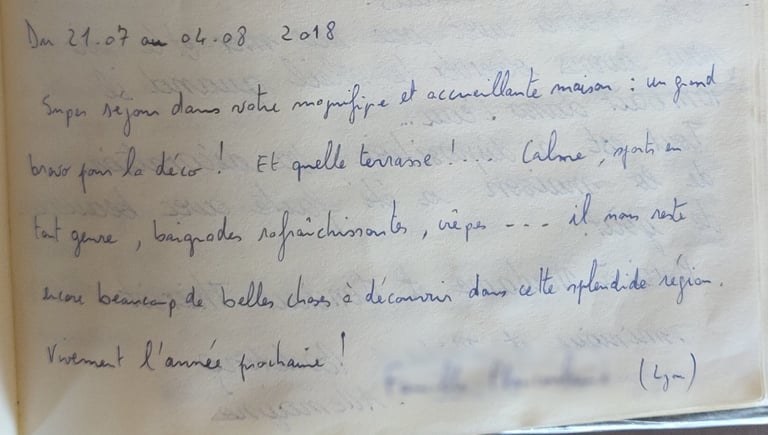 Du 21.07 au 04.08 2018
Super séjour dans votre magnifique et accueillante maison : un grand
bravo pour la déco ! Et quelle terrasse !.... Calme, sports en
tout genre, baignades rafraîchissantes, crêpes .... il nous reste
encore beaucoup de belles choses à découvrir dans cette splendide région.
Vivement l'année prochaine !
(Lyon)